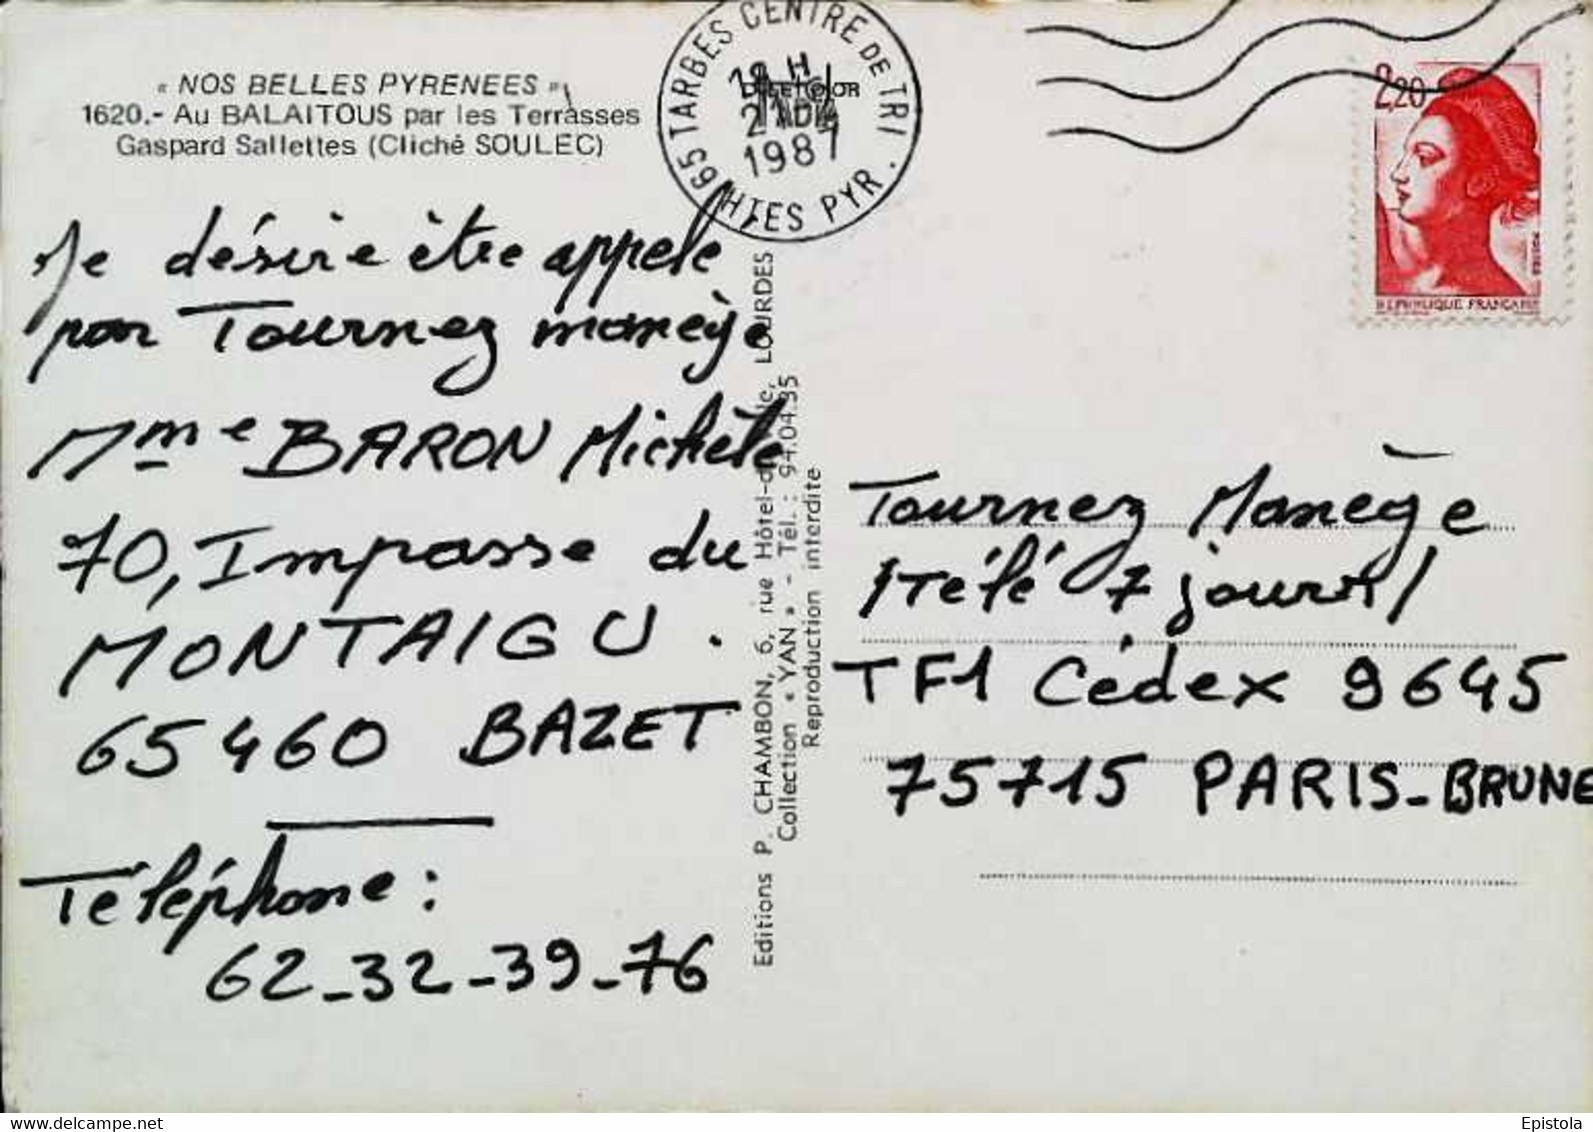 « NOS BELLES PYRENEES »
1620.- Au BALAITOUS par les Terrasses
Gaspard Sallettes (Cliché SOULEC)
65 TARBES CENTRE DE TRI
18 H
1987
HTES PYR.
2,20
REPUBLIQUE FRANCAISE
Je désire être appele
par Tournez manège
Mme BARON Michèle
70, Impasse du
MONTAIGU.
65460 BAZET
Téléphone :
62_32_39_76
Editions P. CHAMBON, 6, rue Hôtel-de LOURDES
Collection « YAN » - Tél. : 94.04.35
Reproduction interdite
Tournez Manège
/Télé 7 jours/
TF1 Cédex 9645
75715 PARIS-BRUNE
Delcampe.net
Epistola